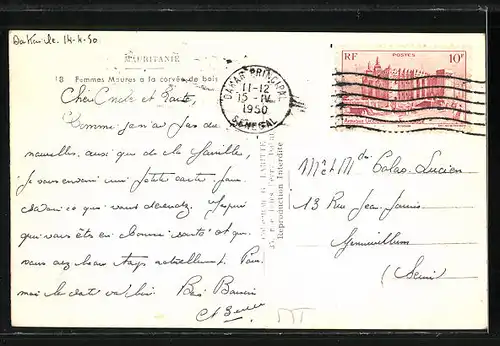 Dakar le 14-4-50
MAURITANIE
18 Femmes Maures a la corvée de bois
Cher et
Comme j'ai pas de
nouvelles, ainsi que de la famille,
Je vous envoie une petite carte pour
savoir ce que vous devenez. J'espère
que vous êts en bonne santé et que
vous avez beau temps actuellement. Pour
moi la santé va bien. Bons Baisers
DAKAR PRINCIPAL
11-12
15-IV
1950
SENEGAL
RF
POSTES
10F
Reproduction Interdite
Mr et Mde Calao Lucien
13 Rue Jean Jaurès
Gennevilliers
(Seine)